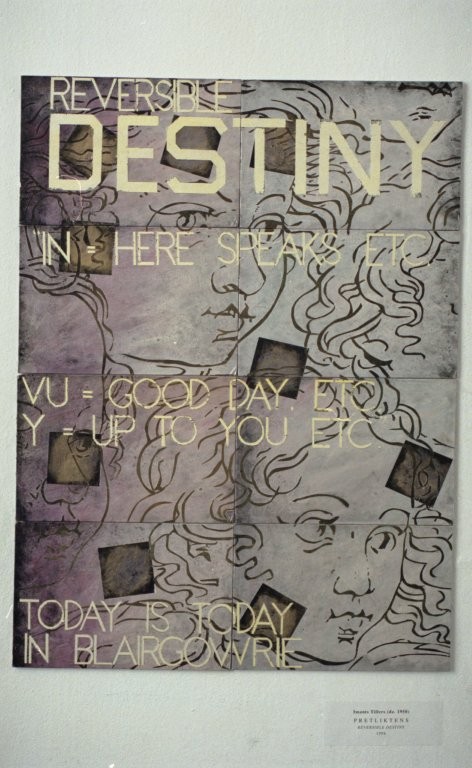 REVERSIBLE
DESTINY
IN = HERE SPEAKS ETC.
VU = GOOD DAY, ETC
Y = UP TO YOU ETC
TODAY IS TODAY
IN BLAIRGOWRIE
Imants Tillers (dz. 1950)
PRETLIKTENS
REVERSIBLE DESTINY